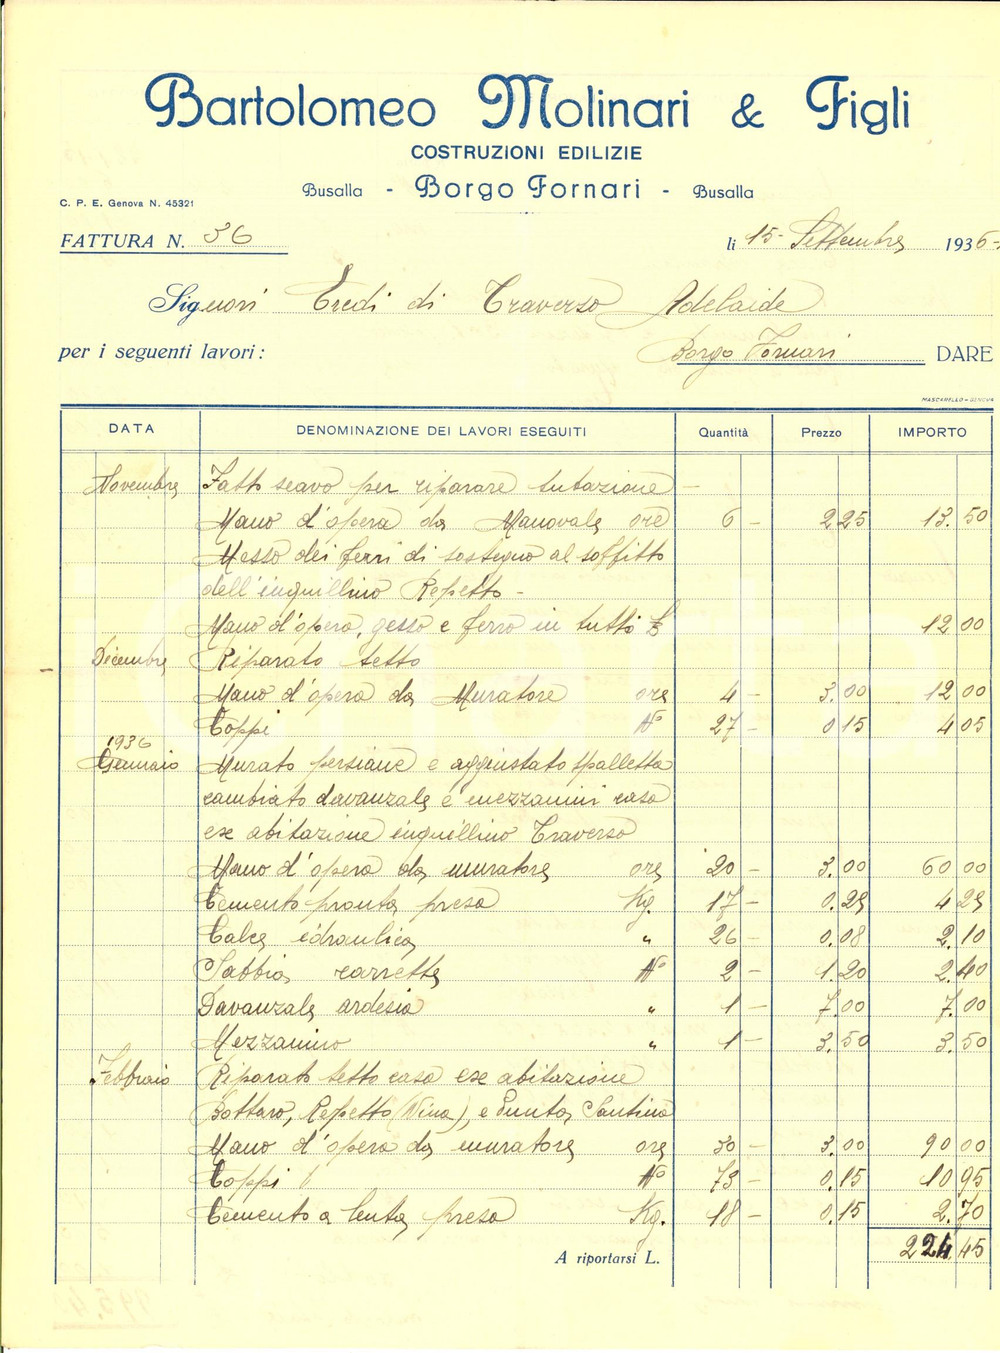 Bartolomeo Molinari & Figli
COSTRUZIONI EDILIZIE
Busalla - Borgo Fornari - Busalla
C. P. E. Genova N. 45321
FATTURA N. 36
li 15 - Settembre 1936-
Signori Eredi di Traverso Adelaide
per i seguenti lavori: Borgo Fornari DARE
MASCARELLO - GENOVA
DATA DENOMINAZIONE DEI LAVORI ESEGUITI Quantità Prezzo IMPORTO
Novembre Fatto scavo per riparare tubazione -
Mano d'opera da Manovale ore 6 - 2 25 13.50
Messo dei ferri di sostegno al soffitto
dell'inquillino Repetto -
Mano d'opera, gesso e ferro in tutto £ 12 00
Dicembre Riparato tetto
Mano d'opera da Muratore ore 4 - 3.00 12 00
Coppi N° 27 - 0 15 4 05
1936
Gennaio Murato persiane e aggiustato spalletta
cambiato davanzale e mezzanini casa
ex abitazione inquillino Traverso
Mano d'opera da muratore ore 20 - 3.00 60 00
Cemento pronta presa Kg. 17 - 0.25 4 25
Calce idraulica " 26 - 0.08 2.10
Sabbia carrette N° 2 - 1.20 2.40
Davanzale ardesia " 1 - 7.00 7.00
Mezzanino " 1 - 3.50 3.50
Febbraio Riparato tetto casa ex abitazione
Bottaro, Repetto (Nina), e Punta Santina
Mano d'opera da muratore ore 30 - 3.00 90 00
Coppi N° 73 - 0.15 10 95
Cemento a lenta presa Kg. 18 - 0.15 2.70
A riportarsi L. 224 45